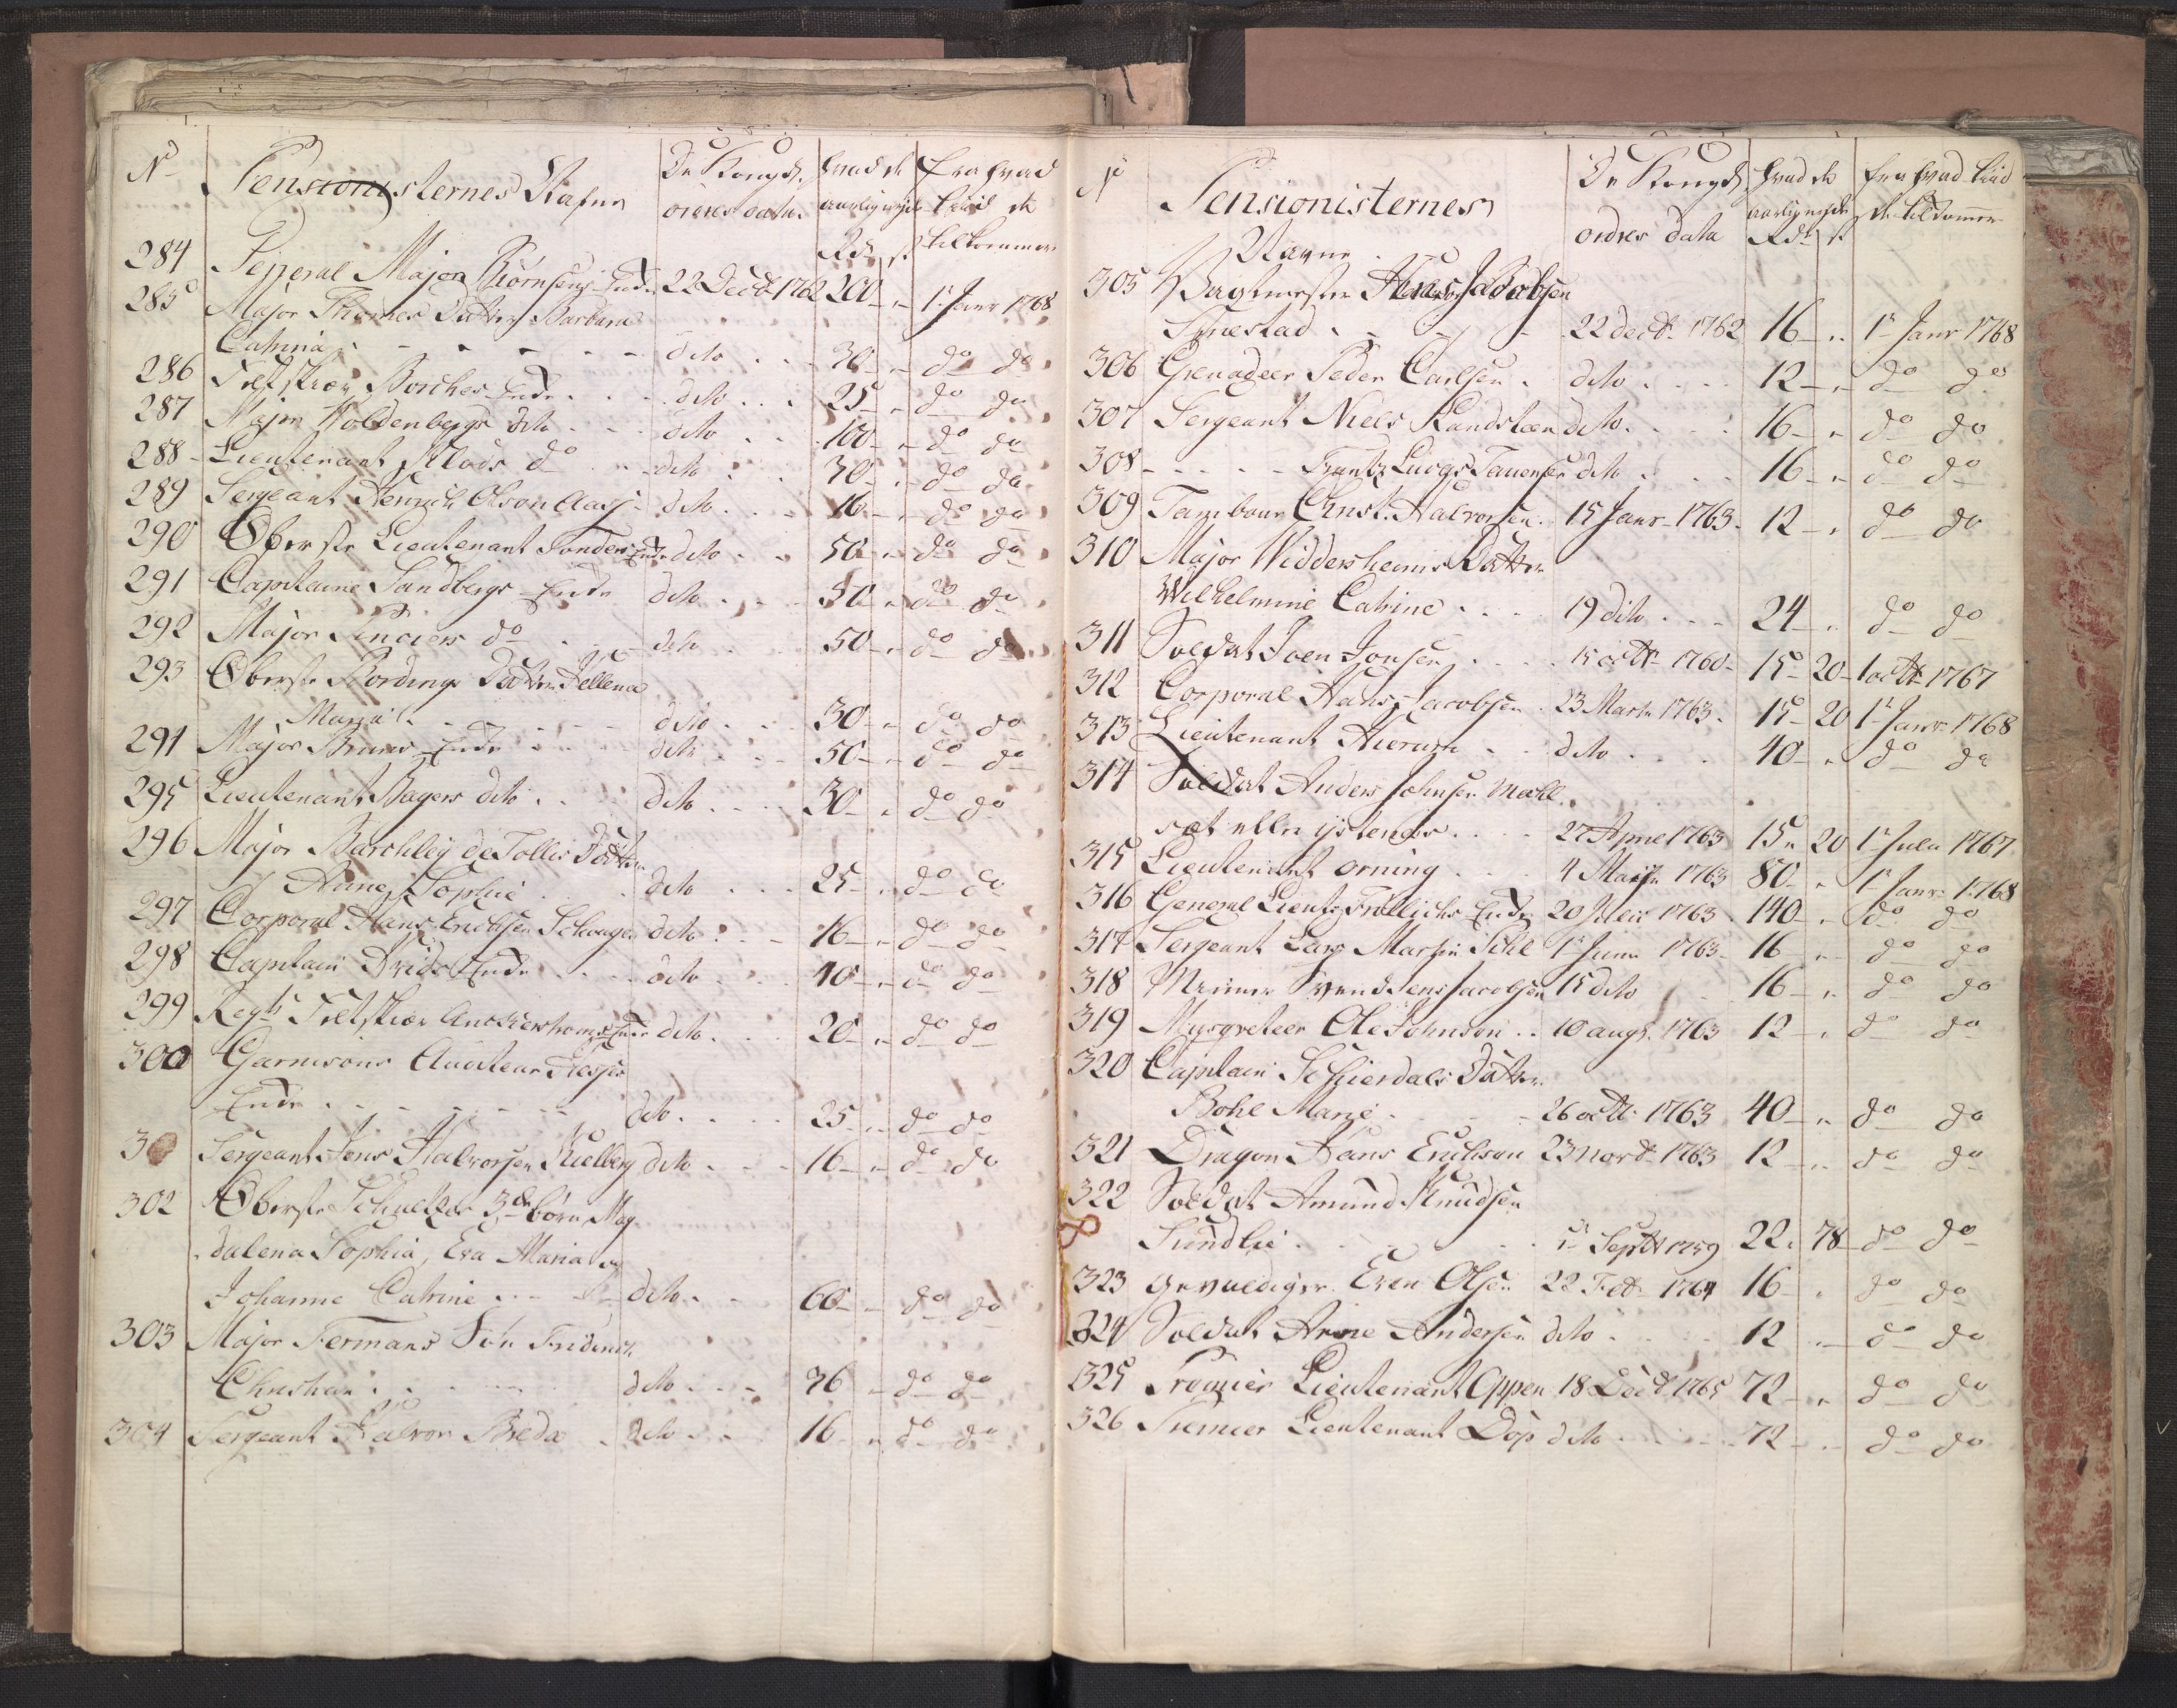 No Pensionisternes Nafne De Kongl. hvad de fra hvad
ordres data. aarlig nyde tiid de
Rdr ß tilkommer
284 General Major Biørnsens Enke 22 Decbr 1762 200 - „ 1 Janv 1768
285 Major Thomes Datter Barbara
Catrina - - - - - dito . . 30 - „ do do
286 Feltskiær Borches Enke . . dito . . 25 - „ do do
287 Major Koldenbergs dito . . dito . . 100 - „ do do
288 - Lieutenant do . . dito . . 30 - „ do do
289 Sergeant Henrich Olson Aass - dito . . 16 - „ do do
290 Øberste Lieutenant Tonders Enke dito . . 50 - „ do do
291 Capitaine Sandbergs Enke dito . . 50 - „ do do
292 Major do . . dito . . 50 - „ do do
293 Øberste Bordings Datter Hellena
Maria - - - - dito . . 30 - „ do do
294 Major Bruns Enke . . dito . . 50 - „ do do
295 Lieutenant Bagers dito . . dito . . 30 - „ do do
296 Major Barchley de Tollis Datter
Anne Sophie . dito . . 25 - „ do do
297 Corporal Hans Erichsen dito . . 16 - „ do do
298 Capitain Enke . . dito . . 40 - „ do do
299 Regts Feltskiær Anckerstroms Enke dito . . 20 - „ do do
300 Garnisons Auditeur
Enke . - - - - dito . . 25 - „ do do
30 Sergeant Jens Halvorsen Kielberg dito . . 16 - „ do do
302 Øberste 3de børn Mag
dalena Sophia, Eva Maria og
Johanne Catrine . . - dito . . 60 - „ do do
303 Major Fermans Søn Friderich
Christian . . . dito . . 36 - „ do do
304 Sergeant Halvor Breda . dito . . 16 - „ do do
No Pensionisternes De Kongl. hvad de fra hvad tiid
Navne . ordres data aarlig nyde de tilkommer
Rdr ß
305 Vagtmester Jacobsen
. - - - 22 decbr 1762 16 - „ 1 Janv 1768
306 Grenadeer Peder Carlsen . dito . . . 12 - „ do do
307 Sergeant Niels dito . . . 16 - „ do do
308 - - - - - dito . . . 16 - „ do do
309 Tambour Christ. Halvorsen . 15 Janv 1763 - 12 - „ do do
310 Major Widdersheims Datter
Wilhelmine Catrine . . . 19 dito . . . 24 - „ do do
311 Soldat Joen Jonsen . . . 15 octbr 1760 - 15 - 20 - 1 octbr 1767
312 Corporal Hans Jacobsen . 23 Marts 1763 . 15 - 20 1 Janv 1768
313 Lieutenant . . dito . . . 40 - „ do do
314 Soldat Anders Johnsen
eller . . . 27 Aprie 1763 15 „ 20 1 Julii 1767
315 Lieutenant orning . . . 4 Maij 1763 80 - „ 1 Janv 1768
316 General Lieut: Frøllichs Enke 20 1763 . 140 - „ do do
317 Sergeant Lars Marsin 1 Junii 1763 - 16 - „ do do
318 Svend Jens Jacobsen 15 dito . 16 - „ do do
319 Musqveteer Ole Johnson . . 10 augs. 1763 12 - „ do do
320 Capitain Schierdals Datter
Bohl Marie . . . 26 octbr 1763 40 - „ do do
321 Dragon Hans Erichson 23 novbr 1763 12 - „ do do
322 Soldat Amund Knudsen
Sundlie . . . . 1 Septbr 1759 22 . 78 do do
323 gevaldiger . Even Olsen 22 Feb. 1764 16 - . do do
324 Soldat Arne Andersen dito . . . 12 - „ do do
325 Premier Lieutenant Oppen 18 Decbr 1765 72 - „ do do
326 Premier Lieutenant Dop dito . . . 72 - „ do do